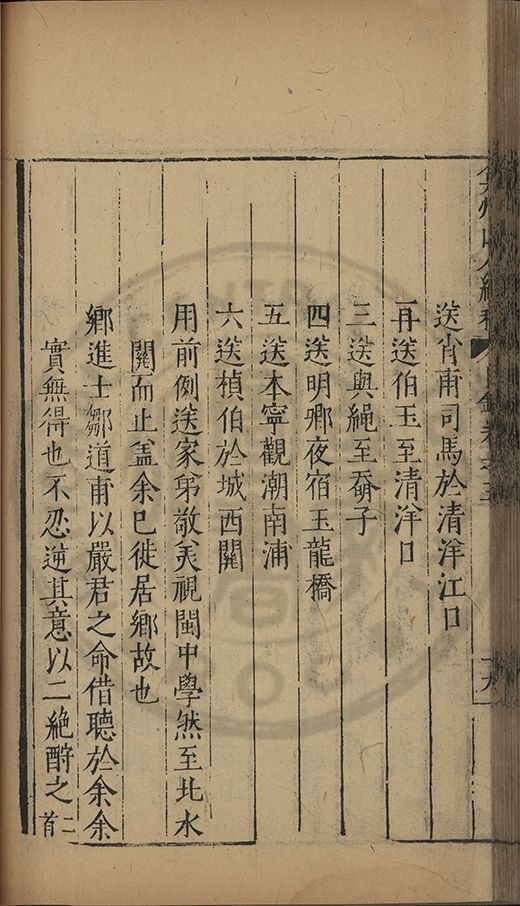 弇州山人續稿 目錄卷之五
送肖甫司馬於清洋江口
再送伯玉至清洋口
三送與繩至子
四送明卿夜宿玉龍橋
五送本寧觀潮南浦
六送楨伯於城西關
用前例送家弟敬美視閩中學然至北水
關而止盖余已徙居鄉故也
鄉進士鄒道甫以嚴君之命借聽於余余
實無得也不忍逆其意以二絕酧之二首